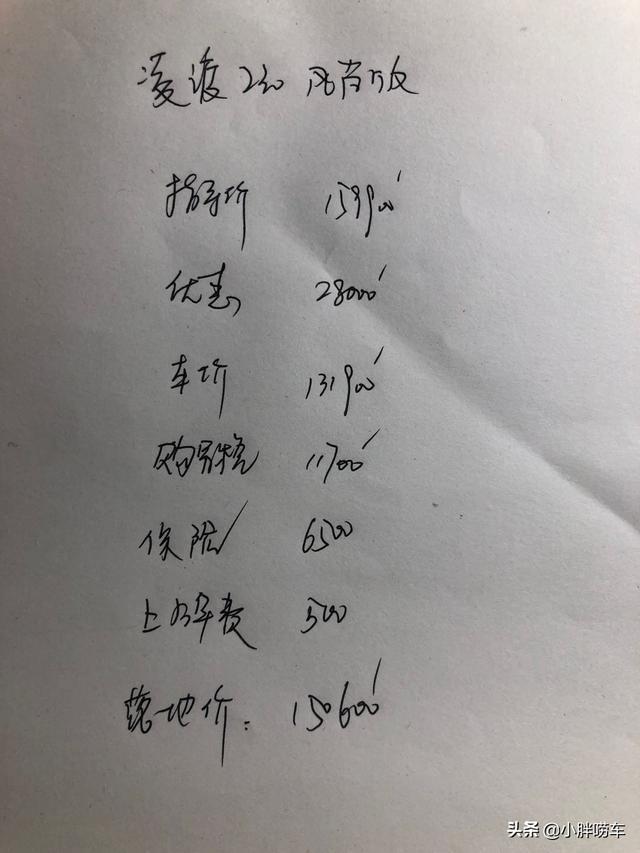 凌渡230风尚版
指导价 159900
优惠 28000
车价 131900
购置税 11700
保险 6500
上牌费 500
落地价: 150600
头条 @小胖唠车